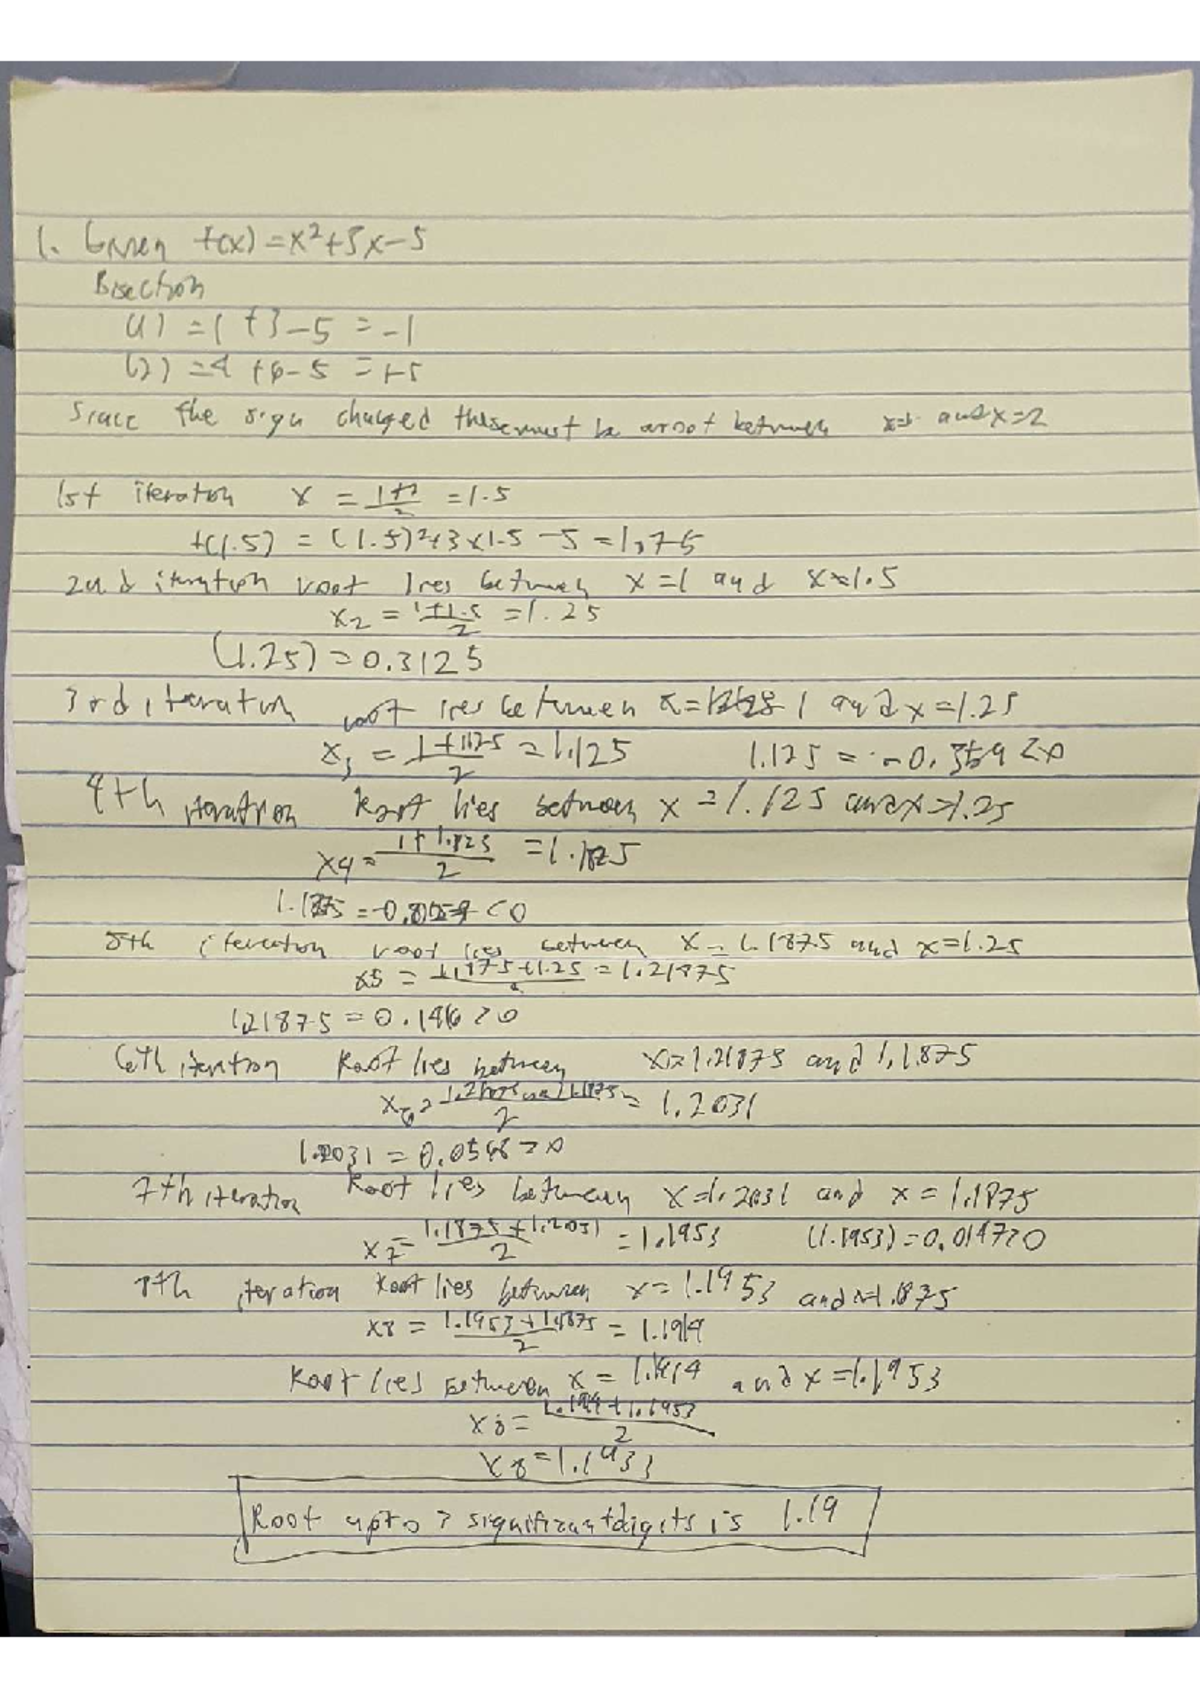 1. Given f(x) = x²+3x-5
Bisection
(1) = 1 +3 -5 = -1
(2) = 4 +6-5 = +5
Since the sign changed there must be a root between x=1 and x=2
1st iteration x = 1+2/2 = 1.5
f(1.5) = (1.5)²+3×1.5 -5 = 1.75
2nd iteration root lies between x=1 and x=1.5
x2 = 1+1.5/2 = 1.25
(1.25) = 0.3125
3rd iteration root lies between x= 1 and x=1.25
x3 = 1+1.25/2 = 1.125 1.125 = -0.359 <0
4th iteration Root lies between x = 1.125 and x=1.25
x4 = /2 = 1.1875
1.1875 = <0
5th iteration root lies between x = 1.1875 and x=1.25
x5 = 1.1875+1.25/2 = 1.21875
1.21875 = 0.146 >0
6th iteration Root lies between x=1.21875 and 1.1875
x6 = /2 = 1.2031
1.2031 = >0
7th iteration Root lies between x=1.2031 and x = 1.1875
x7 = 1.1875+1.2031/2 = 1.1953 (1.1953) = 0.0147>0
8th iteration Root lies between x= 1.1953 and x=1.1875
x8 = 1.1953+1.1875/2 = 1.1914
Root lies between x = 1.1914 and x =1.1953
x8 = 1.1914+1.1953/2
x8 = 1.1933
Root upto 3 significant digits is 1.19